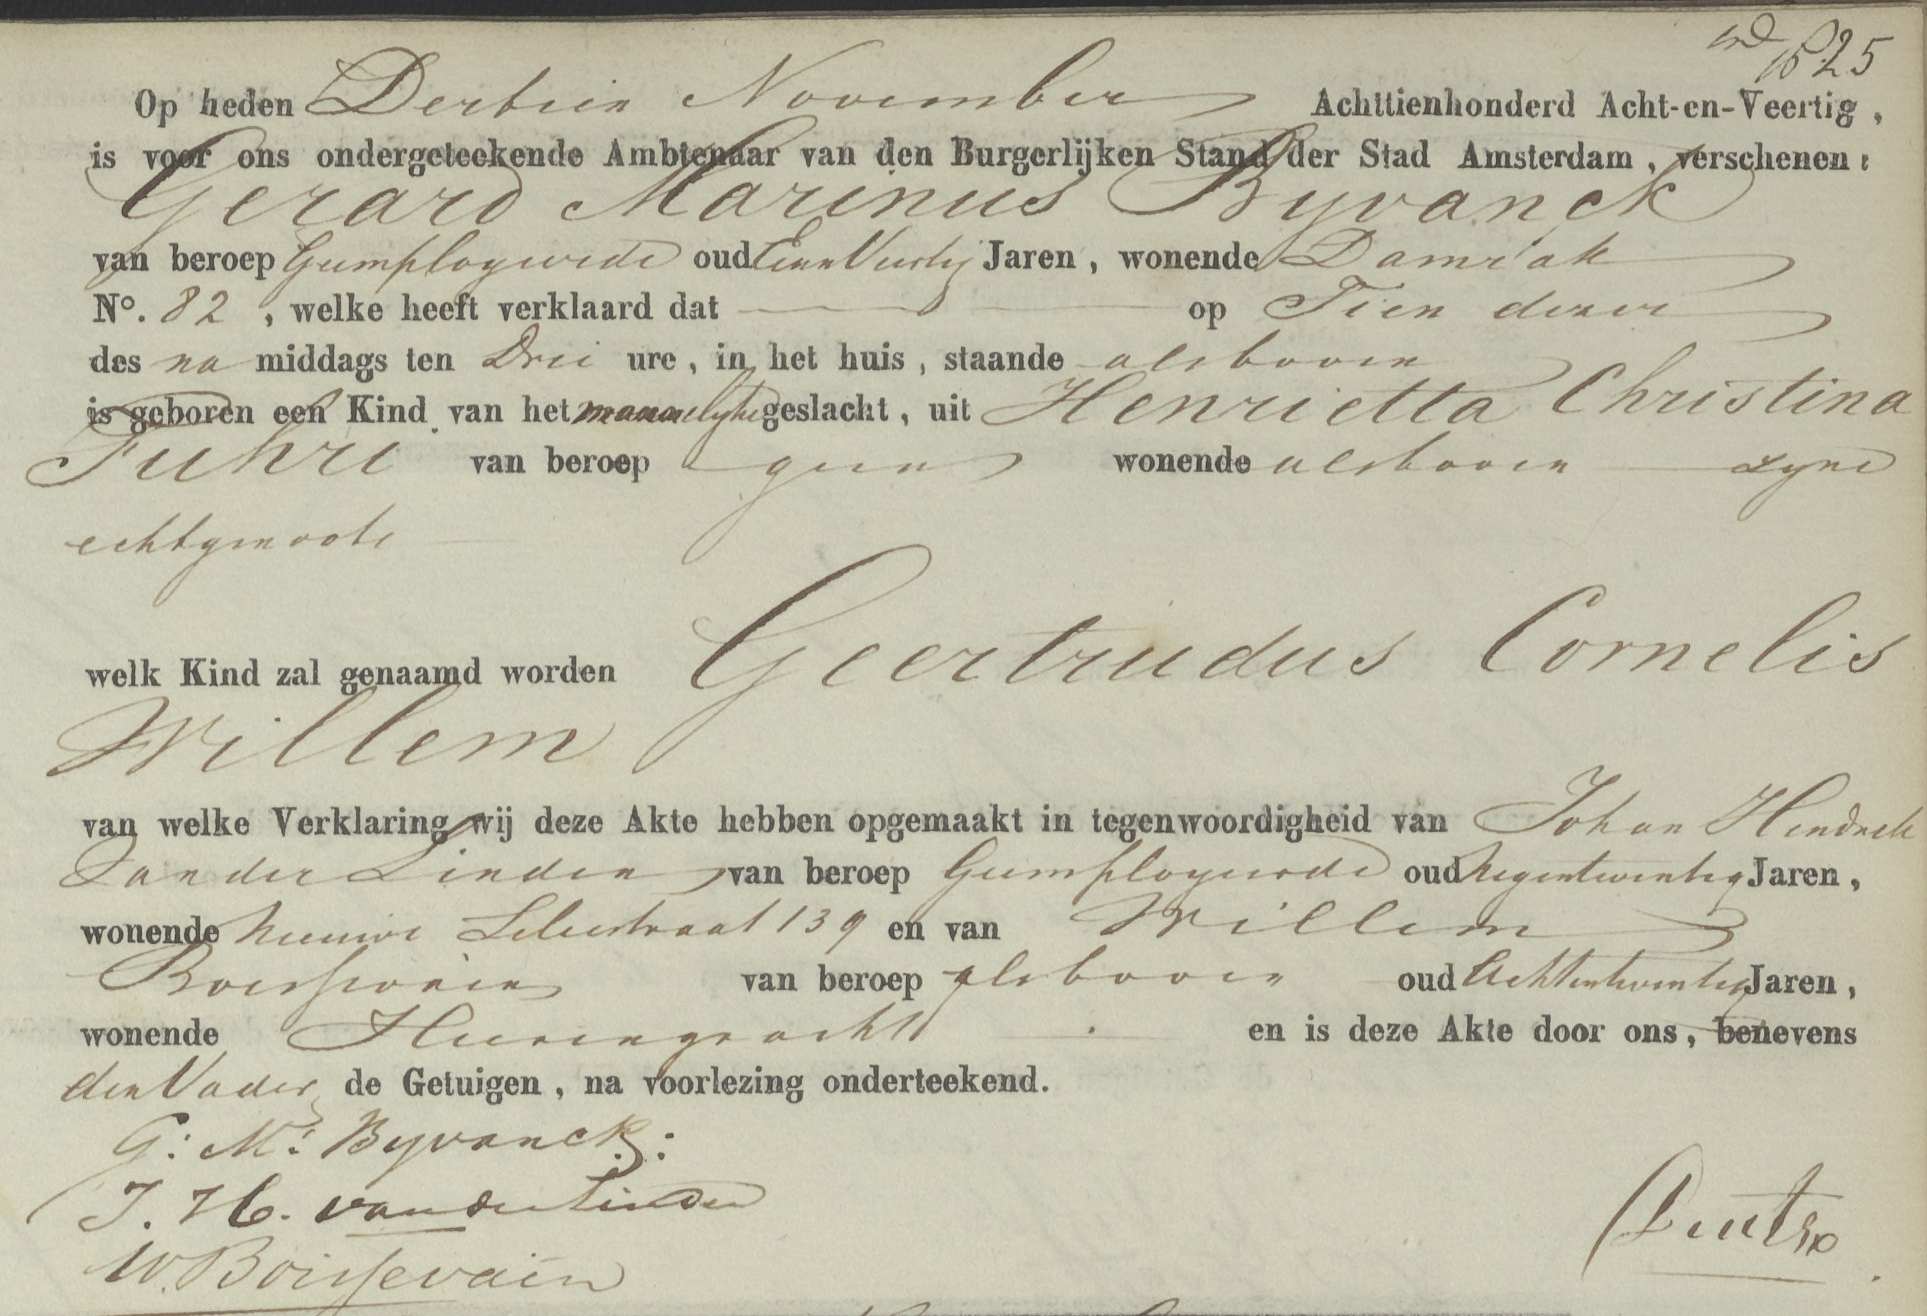 1625
Op heden Dertien November Achttienhonderd Acht-en-Veertig,
is voor ons ondergeteekende Ambtenaar van den Burgerlijken Stand der Stad Amsterdam, verschenen:
Gerard Marinus Byvanck
van beroep Geemployeerde oud Een Veertig Jaren, wonende Damrak
No. 82, welke heeft verklaard dat op Tien dezer
des na middags ten Drie ure, in het huis, staande alsboven
is geboren een Kind van het mannelyke geslacht, uit Henrietta Christina
Fuhri van beroep geen wonende alsboven zyne
echtgenoote
welk Kind zal genaamd worden Geertrudus Cornelis
Willem
van welke Verklaring wij deze Akte hebben opgemaakt in tegenwoordigheid van Johan Hendrik
van der Linden van beroep Geemployeerde oud Negentwintig Jaren,
wonende Nieuwe Leliestraat 139 en van Willem
Boissevain van beroep alsboven oud Achtentwintig Jaren,
wonende Heerengracht en is deze Akte door ons, benevens
den Vader de Getuigen, na voorlezing onderteekend.
G: M: Byvanck:
J. H. van der Linden
W. Boissevain